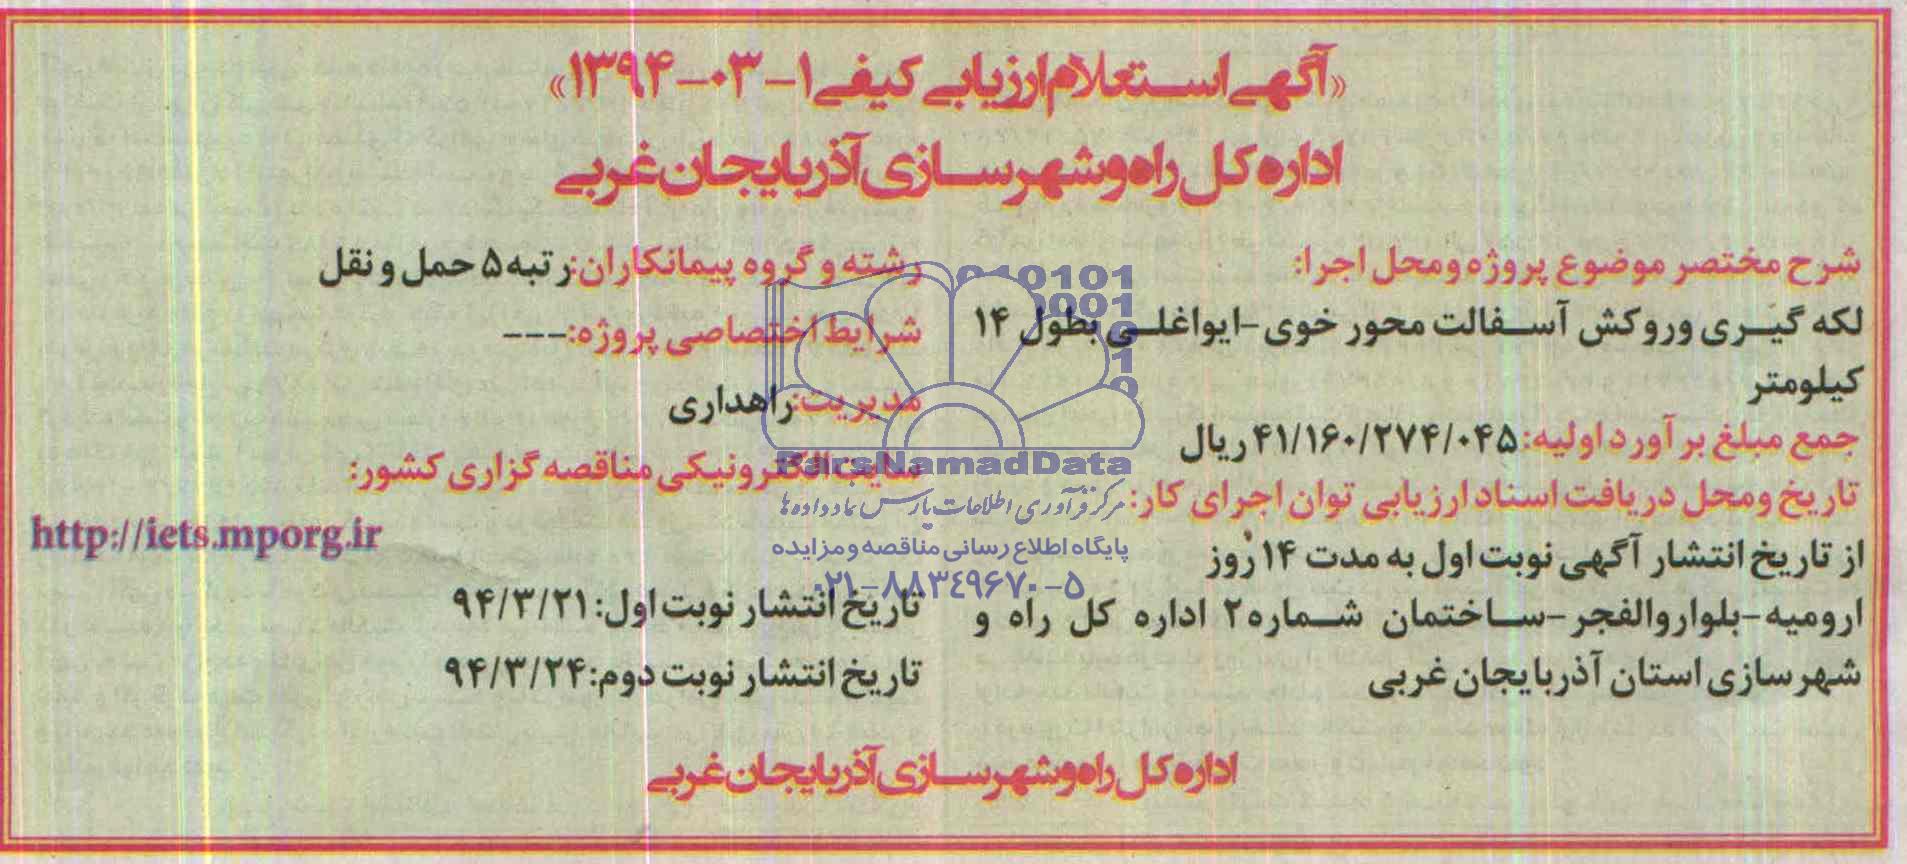 «آگهی استعلام ارزیابی کیفی ۱-۰۳-۱۳۹۴»
اداره کل راه و شهرسازی آذربایجان غربی
شرح مختصر موضوع پروژه و محل اجرا:
لکه گیری و روکش آسفالت محور خوی -ایواغلی بطول ۱۴
کیلومتر
جمع مبلغ برآورد اولیه: ۴۱/۱۶۰/۲۷۴/۰۴۵ ریال
تاریخ و محل دریافت اسناد ارزیابی توان اجرای کار:
از تاریخ انتشار آگهی نوبت اول به مدت ۱۴ روز
ارومیه -بلوار والفجر -ساختمان شماره ۲ اداره کل راه و
شهرسازی استان آذربایجان غربی
رشته و گروه پیمانکاران: رتبه ۵ حمل و نقل
شرایط اختصاصی پروژه: ---
مدیریت: راهداری
سایت الکترونیکی مناقصه گزاری کشور:
http://iets.mporg.ir
تاریخ انتشار نوبت اول: ۹۴/۳/۲۱
تاریخ انتشار نوبت دوم: ۹۴/۳/۲۴
اداره کل راه و شهرسازی آذربایجان غربی
ParsNamadData
مرکز فرآوری اطلاعات پارس نماد داده ها
پایگاه اطلاع رسانی مناقصه و مزایده
۰۲۱-۸۸۳۴۹۶۷۰-۵